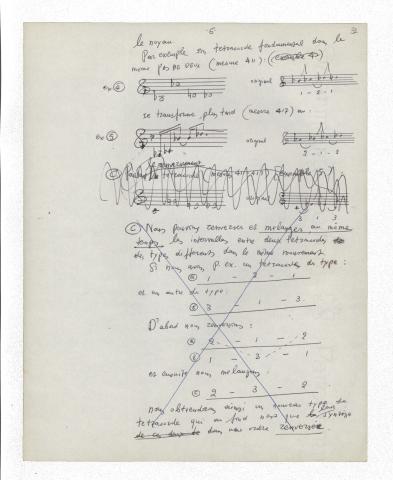 6
le noyau.
Par exemple un tetracorde fondamental dans le
même pas de deux (mesure 411): (exemple 4)
ex 4 original
1 - 2 - 1
se transforme plus tard (mesure 417) en:
ex 5 original
2 - 1 - 2
original
3 1 3
C Nous pouvons renverser et mélanger, au même
temps les intervalles entre deux tetracordes
de types differents dans le même mouvement
Si nous avons p. ex. un tetracorde du type:
1 - 2 - 1
et un autre du type:
3 - 1 - 3
D'abord nous renversons:
2 - 1 - 2
1 - 3 - 1
et ensuite nous mélangeons:
2 - 3 - 2
nous obtiendrons ainsi un nouveau type de
tetracorde qui au fond n'est que la synthèse
de ces deux dans leur ordre renversé.